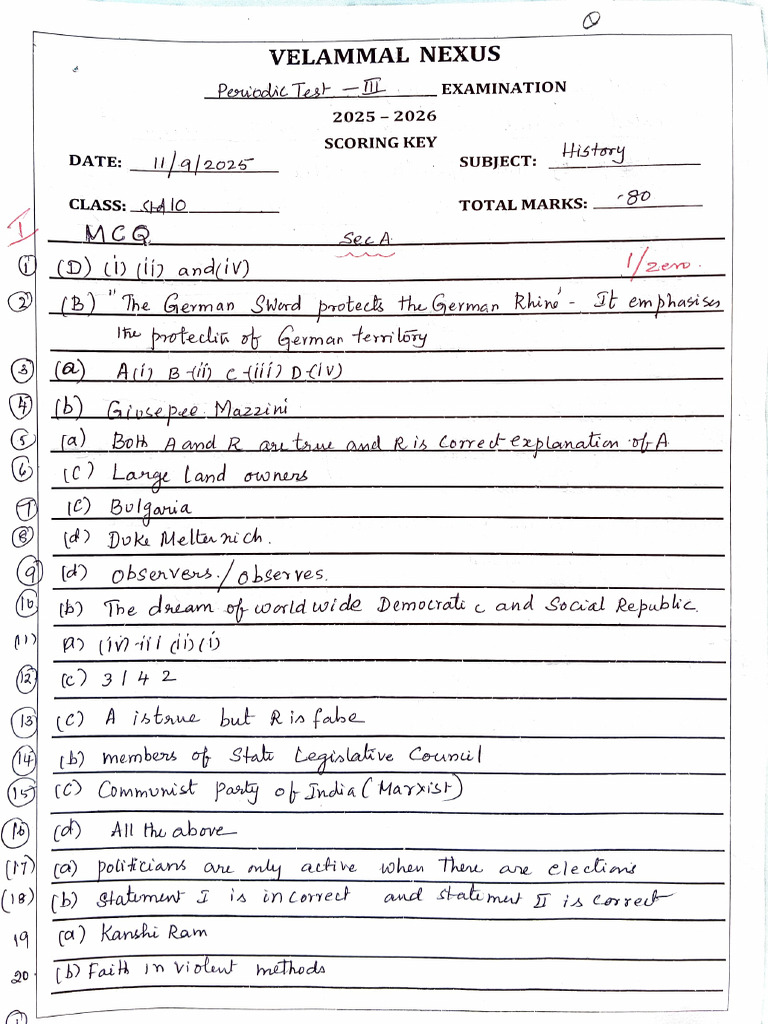 1
VELAMMAL NEXUS
Periodic Test - III EXAMINATION
2025 – 2026
SCORING KEY
DATE: 11/9/2025 SUBJECT: History
CLASS: Std 10 TOTAL MARKS: 80
I MCQ Sec A
1 (D) (i) (ii) and (iv) 1/zero.
2 (B) "The German Sword protects the German Rhine' - It emphasises
the protection of German territory
3 (a) A(i) B-(ii) C-(iii) D-(iv)
4 (b) Giusepee Mazzini
5 (a) Both A and R are true and R is correct explanation of A
6 (C) Large land owners
7 (C) Bulgaria
8 (d) Duke Metternich.
9 (d) observers./observes.
10 (b) The dream of worldwide Democratic and Social Republic.
(11) a) (iv) iii (ii) (i)
12 (c) 3 1 4 2
13 (C) A is true but R is false
14 (b) members of State Legislative Council
15 (C) Communist Party of India (Marxist)
16 (d) All the above
(17) (a) politicians are only active when There are elections
(18) (b) Statement I is incorrect and statement II is correct
19 (a) Kanshi Ram
20 (b) Faith in violent methods